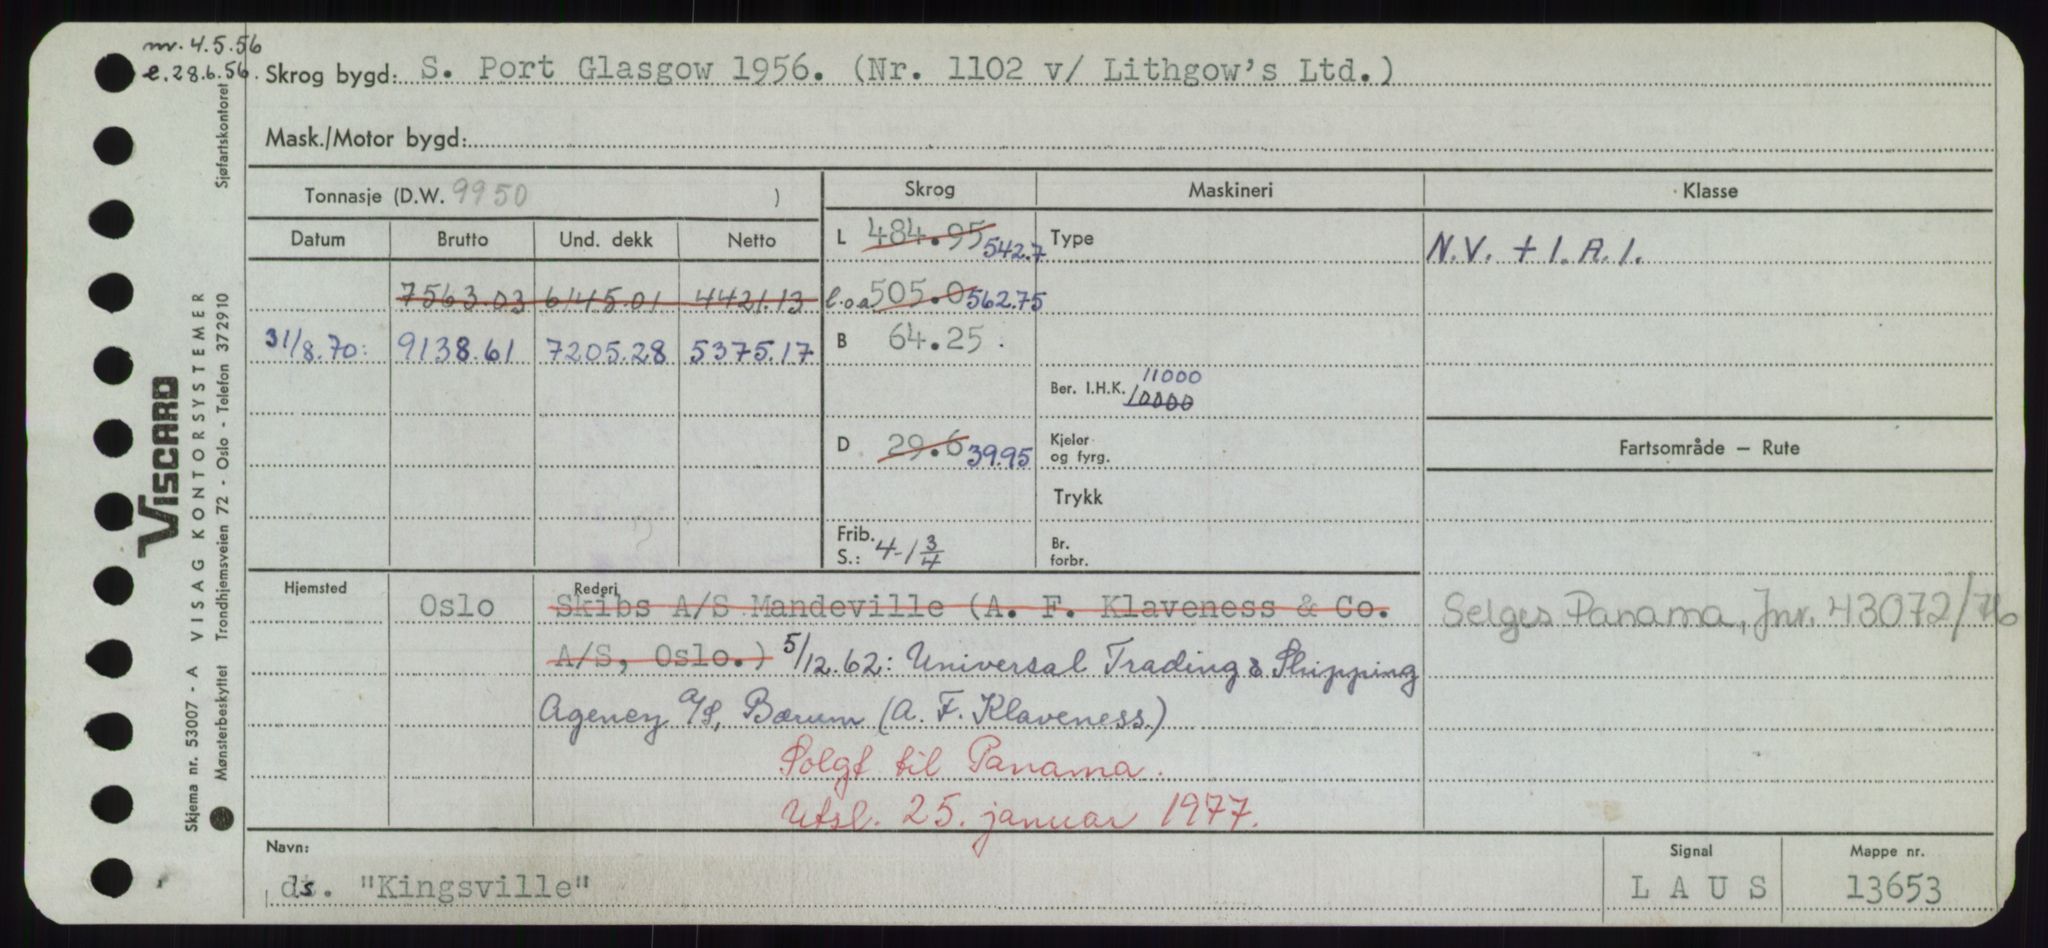 nr. 4.5.56
e. 28.6.56.
Skrog bygd: S. Port Glasgow 1956. (Nr. 1102 v/ Lithgow's Ltd.)
Mask./Motor bygd:
Tonnasje (D.W. 9950 )
Skrog
Maskineri
Klasse
Datum
Brutto
Und. dekk
Netto
L 484.95 542.7
Type
N.V. + 1. A. 1.
7563.03 6145.01 4421.13
l.o.a 505.0 562.75
31/8.70: 9138.61 7205.28 5375.17
B 64.25
Ber. I.H.K. 10000 11000
D 29.6 39.95
Kjeler og fyrg.
Fartsområde — Rute
Trykk
Frib. S.: 4-1 3/4
Br. forbr.
Hjemsted
Oslo
Rederi
Skibs A/S Mandeville (A. F. Klaveness & Co.
A/S, Oslo.) 5/12.62: Universal Trading & Shipping
Agency A/S, Bærum (A. F. Klaveness.)
Solgt til Panama.
Utsl. 25. januar 1977.
Selges Panama, Jnr. 43072/76
Navn:
ds. "Kingsville"
Signal
L A U S
Mappe nr.
13653
Sjøfartskontoret
VISCARD
Skjema nr. 53007 - A VISAG KONTORSYSTEMER
Mønsterbeskyttet Trondhjemsveien 72 - Oslo - Telefon 372910